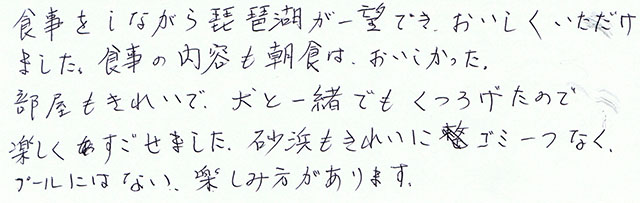 食事をしながら琵琶湖が一望でき、おいしくいただけ
ました。食事の内容も朝食は、おいしかった。
部屋もきれいで、犬と一緒でもくつろげたので
楽しくすごせました。砂浜もきれいにゴミ一つなく、
プールにはない、楽しみ方があります。